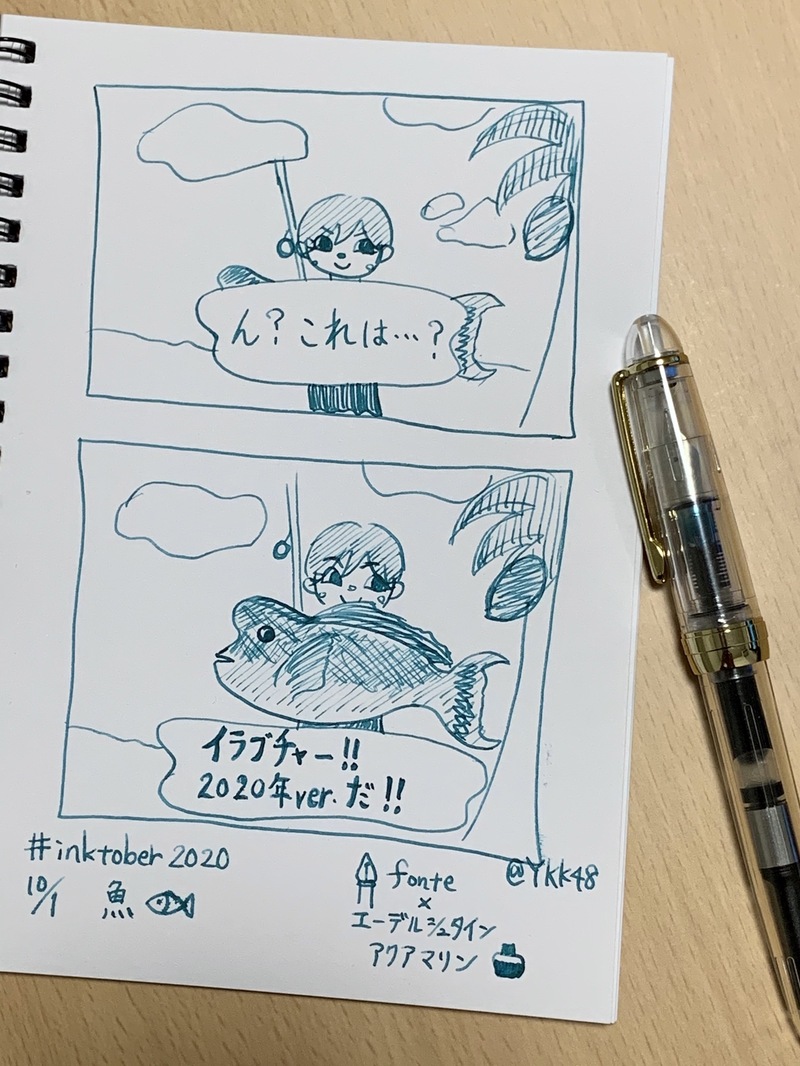 ん?これは…?
イラブチャー!!
2020年ver.だ!!
#inktober 2020
10/1 魚
fonte
×
エーデルシュタイン
アクアマリン
@YKK48